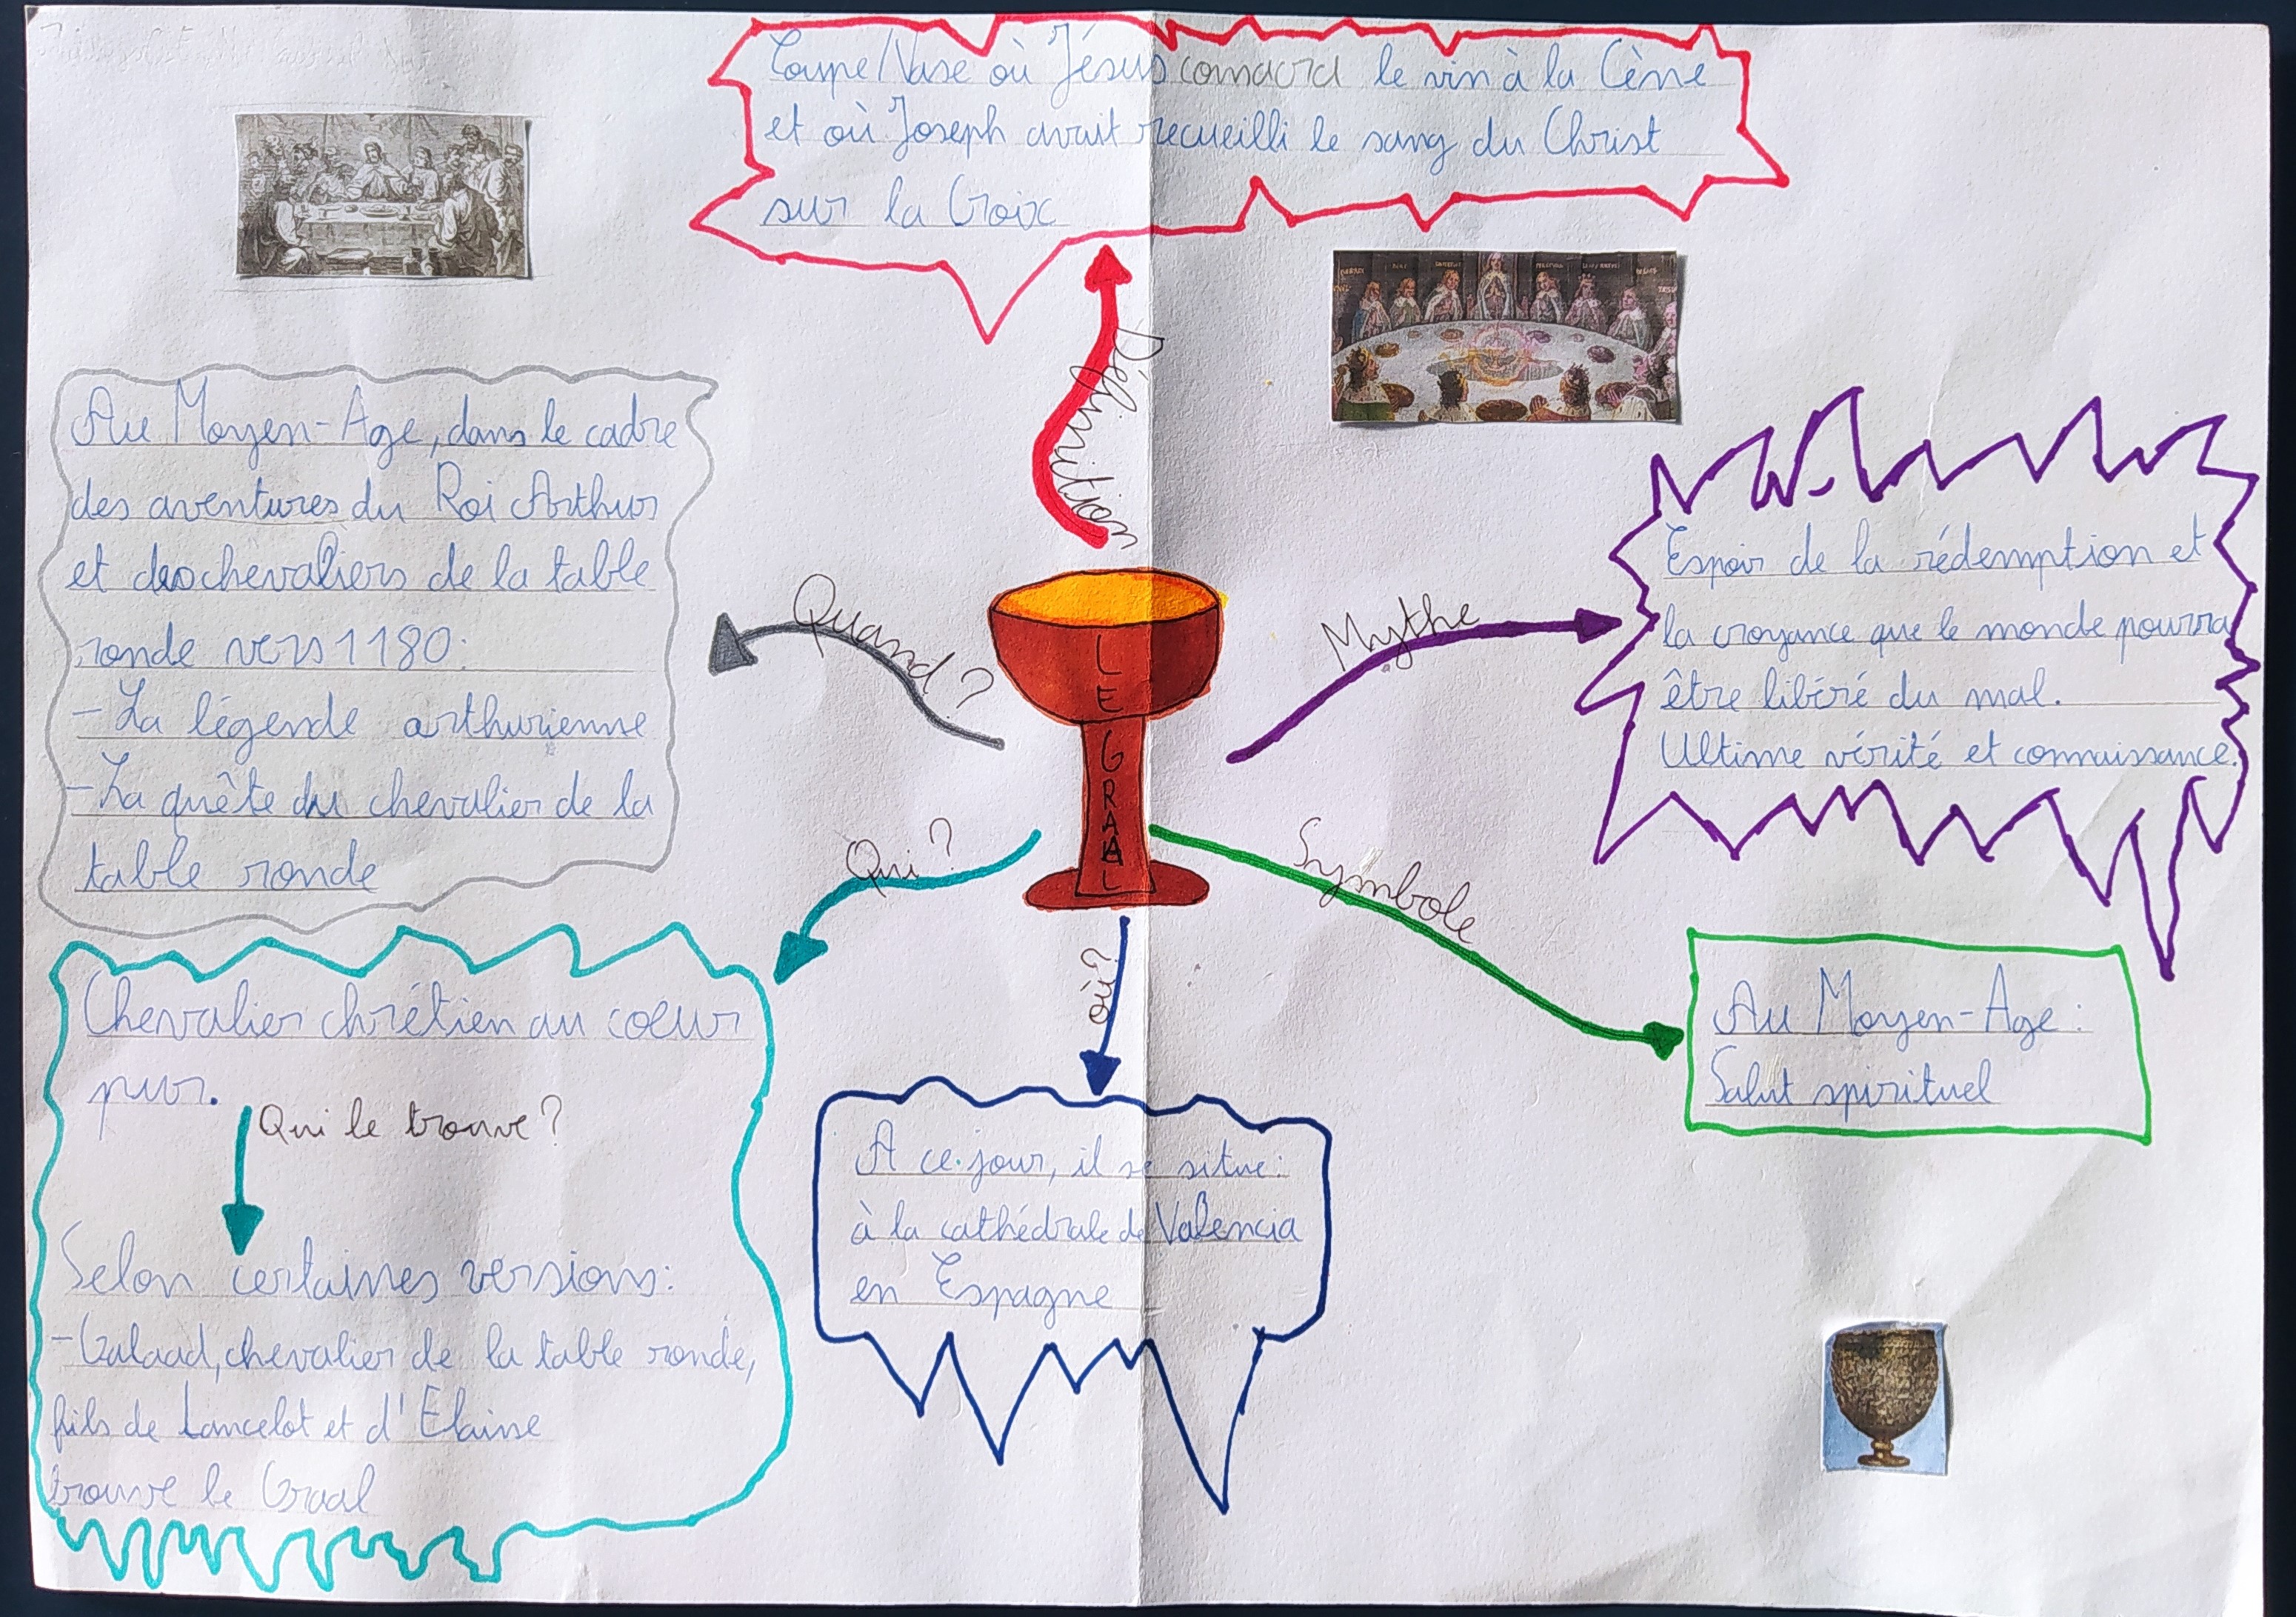 Coupe/Vase où Jésus consacra le vin à la Cène
et où Joseph avait recueilli le sang du Christ
sur la Croix
Définition
Au Moyen-Age, dans le cadre
des aventures du Roi Arthur
et des chevaliers de la table
ronde vers 1180:
- La légende arthurienne
- La quête du chevalier de la
table ronde
Quand ?
Mythe
Espoir de la rédemption et
la croyance que le monde pourra
être libéré du mal.
Ultime vérité et connaissance.
LE GRAAL
Qui ?
Symbole
où?
Chevalier chrétien au coeur
pur.
Qui le trouve ?
Selon certaines versions:
- Galaad, chevalier de la table ronde,
fils de Lancelot et d'Elaine
trouve le Graal
A ce jour, il se situe:
à la cathédrale de Valencia
en Espagne
Au Moyen-Age :
Salut spirituel